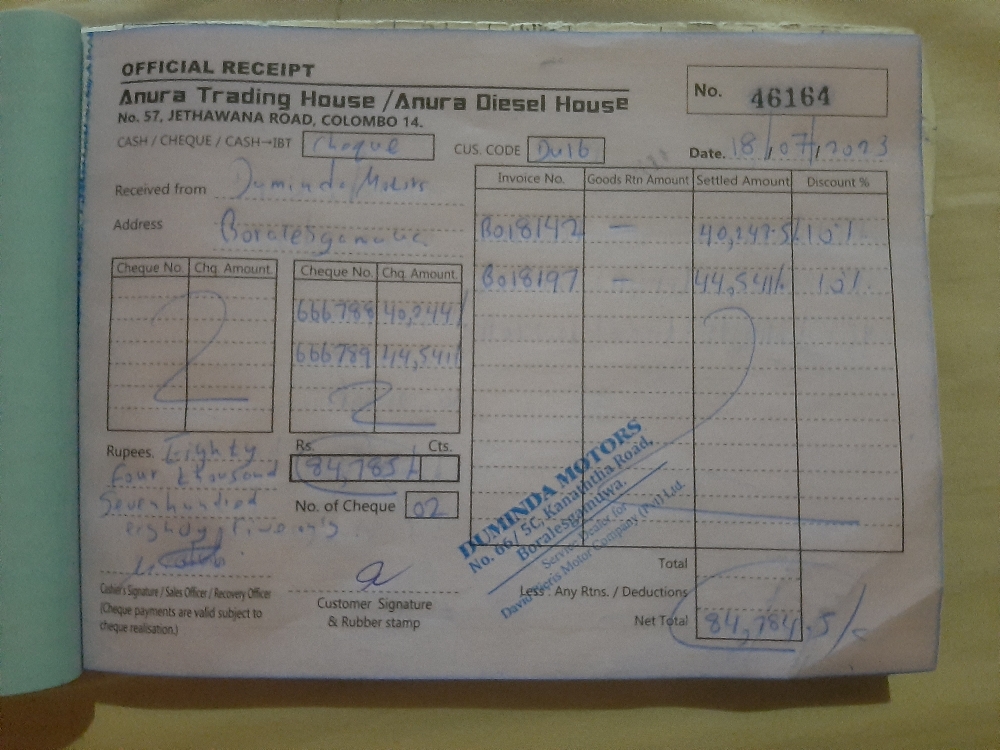 OFFICIAL RECEIPT
Anura Trading House / Anura Diesel House
No. 57, JETHAWANA ROAD, COLOMBO 14.
No. 46164
CASH / CHEQUE / CASH→IBT Cheque
CUS. CODE Du16
Date. 18/07/2023
Received from Duminda Motors
Address Boralesgamuwa
Invoice No. Goods Rtn Amount Settled Amount Discount %
Bo18142 — 10%
Bo18197 — 44,541/ 10%
Cheque No. Chq. Amount. Cheque No. Chq. Amount.
666788 40,244/
666789 44,541/
2 2
Rupees. Eighty
four thousand
Sevenhundred
eighdy five only.
Rs. Cts.
84,785/
No. of Cheque 02
DUMINDA MOTORS
No. 66/ 5C, Kanaththa Road,
Boralesgamuwa.
Service Dealer for
David Pieris Motor Company (Pvt) Ltd.
Total
Less : Any Rtns. / Deductions
Net Total 84,784.5/
Cashier's Signature / Sales Officer / Recovery Officer
(Cheque payments are valid subject to
cheque realisation.)
Customer Signature
& Rubber stamp